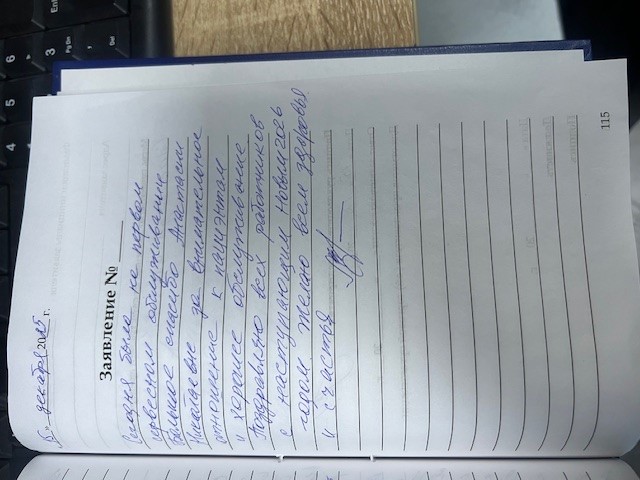 декабря 2025 г.
Заявление №
Сегодня была на первом
сервисном обслуживании
Большое спасибо Анастасии
за внимательное
отношение к клиентам
и хорошее обслуживание
Поздравляю всех работников
с наступающим Новым 2026
годом желаю всем здоровья
и счастья
115